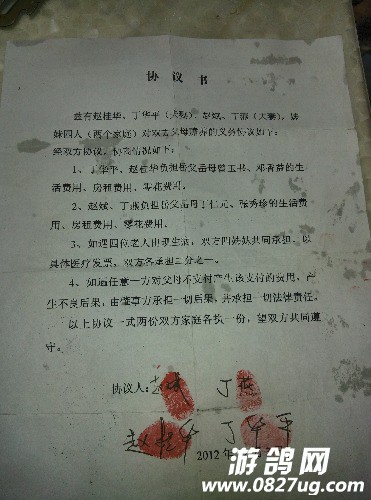 协议书
兹有赵桂华、丁华平（夫妻）、赵斌、丁燕（夫妻），
妹四人（两个家庭）对双方父母赡养的义务协议如下：
经双方协议，协议情况如下：
1、丁华平、赵桂华负担岳父岳母曾玉书、邓香莲的生
活费用、房租费用、零花费用。
2、赵斌、丁燕负担岳父岳母丁仁元、张秀珍的生活费
用、房租费用、零花费用。
3、如遇四位老人出现生活，双方四姊妹共同承担，以
具体医疗发票，双方各承担二分之一。
4、如遇任意一方对父母不支付产生该支付的费用，产
生不良后果，由肇事方承担一切后果，并承担一切法律责任。
以上协议一式两份双方家庭各执一份，望双方共同遵
守。
协议人：赵斌 丁燕
赵桂华 丁华平
2012年
游鸽网
www.0827ug.com